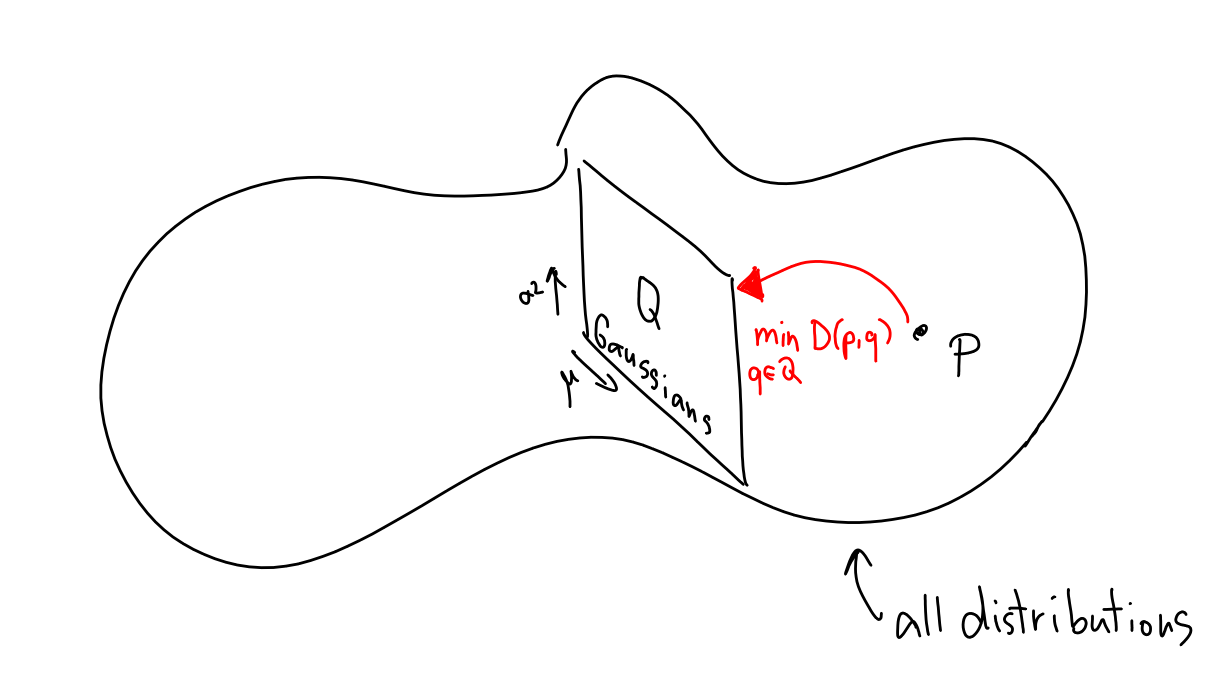 σ²
Q
Gaussians
μ
min D(p,q)
q∈Q
P
all distributions